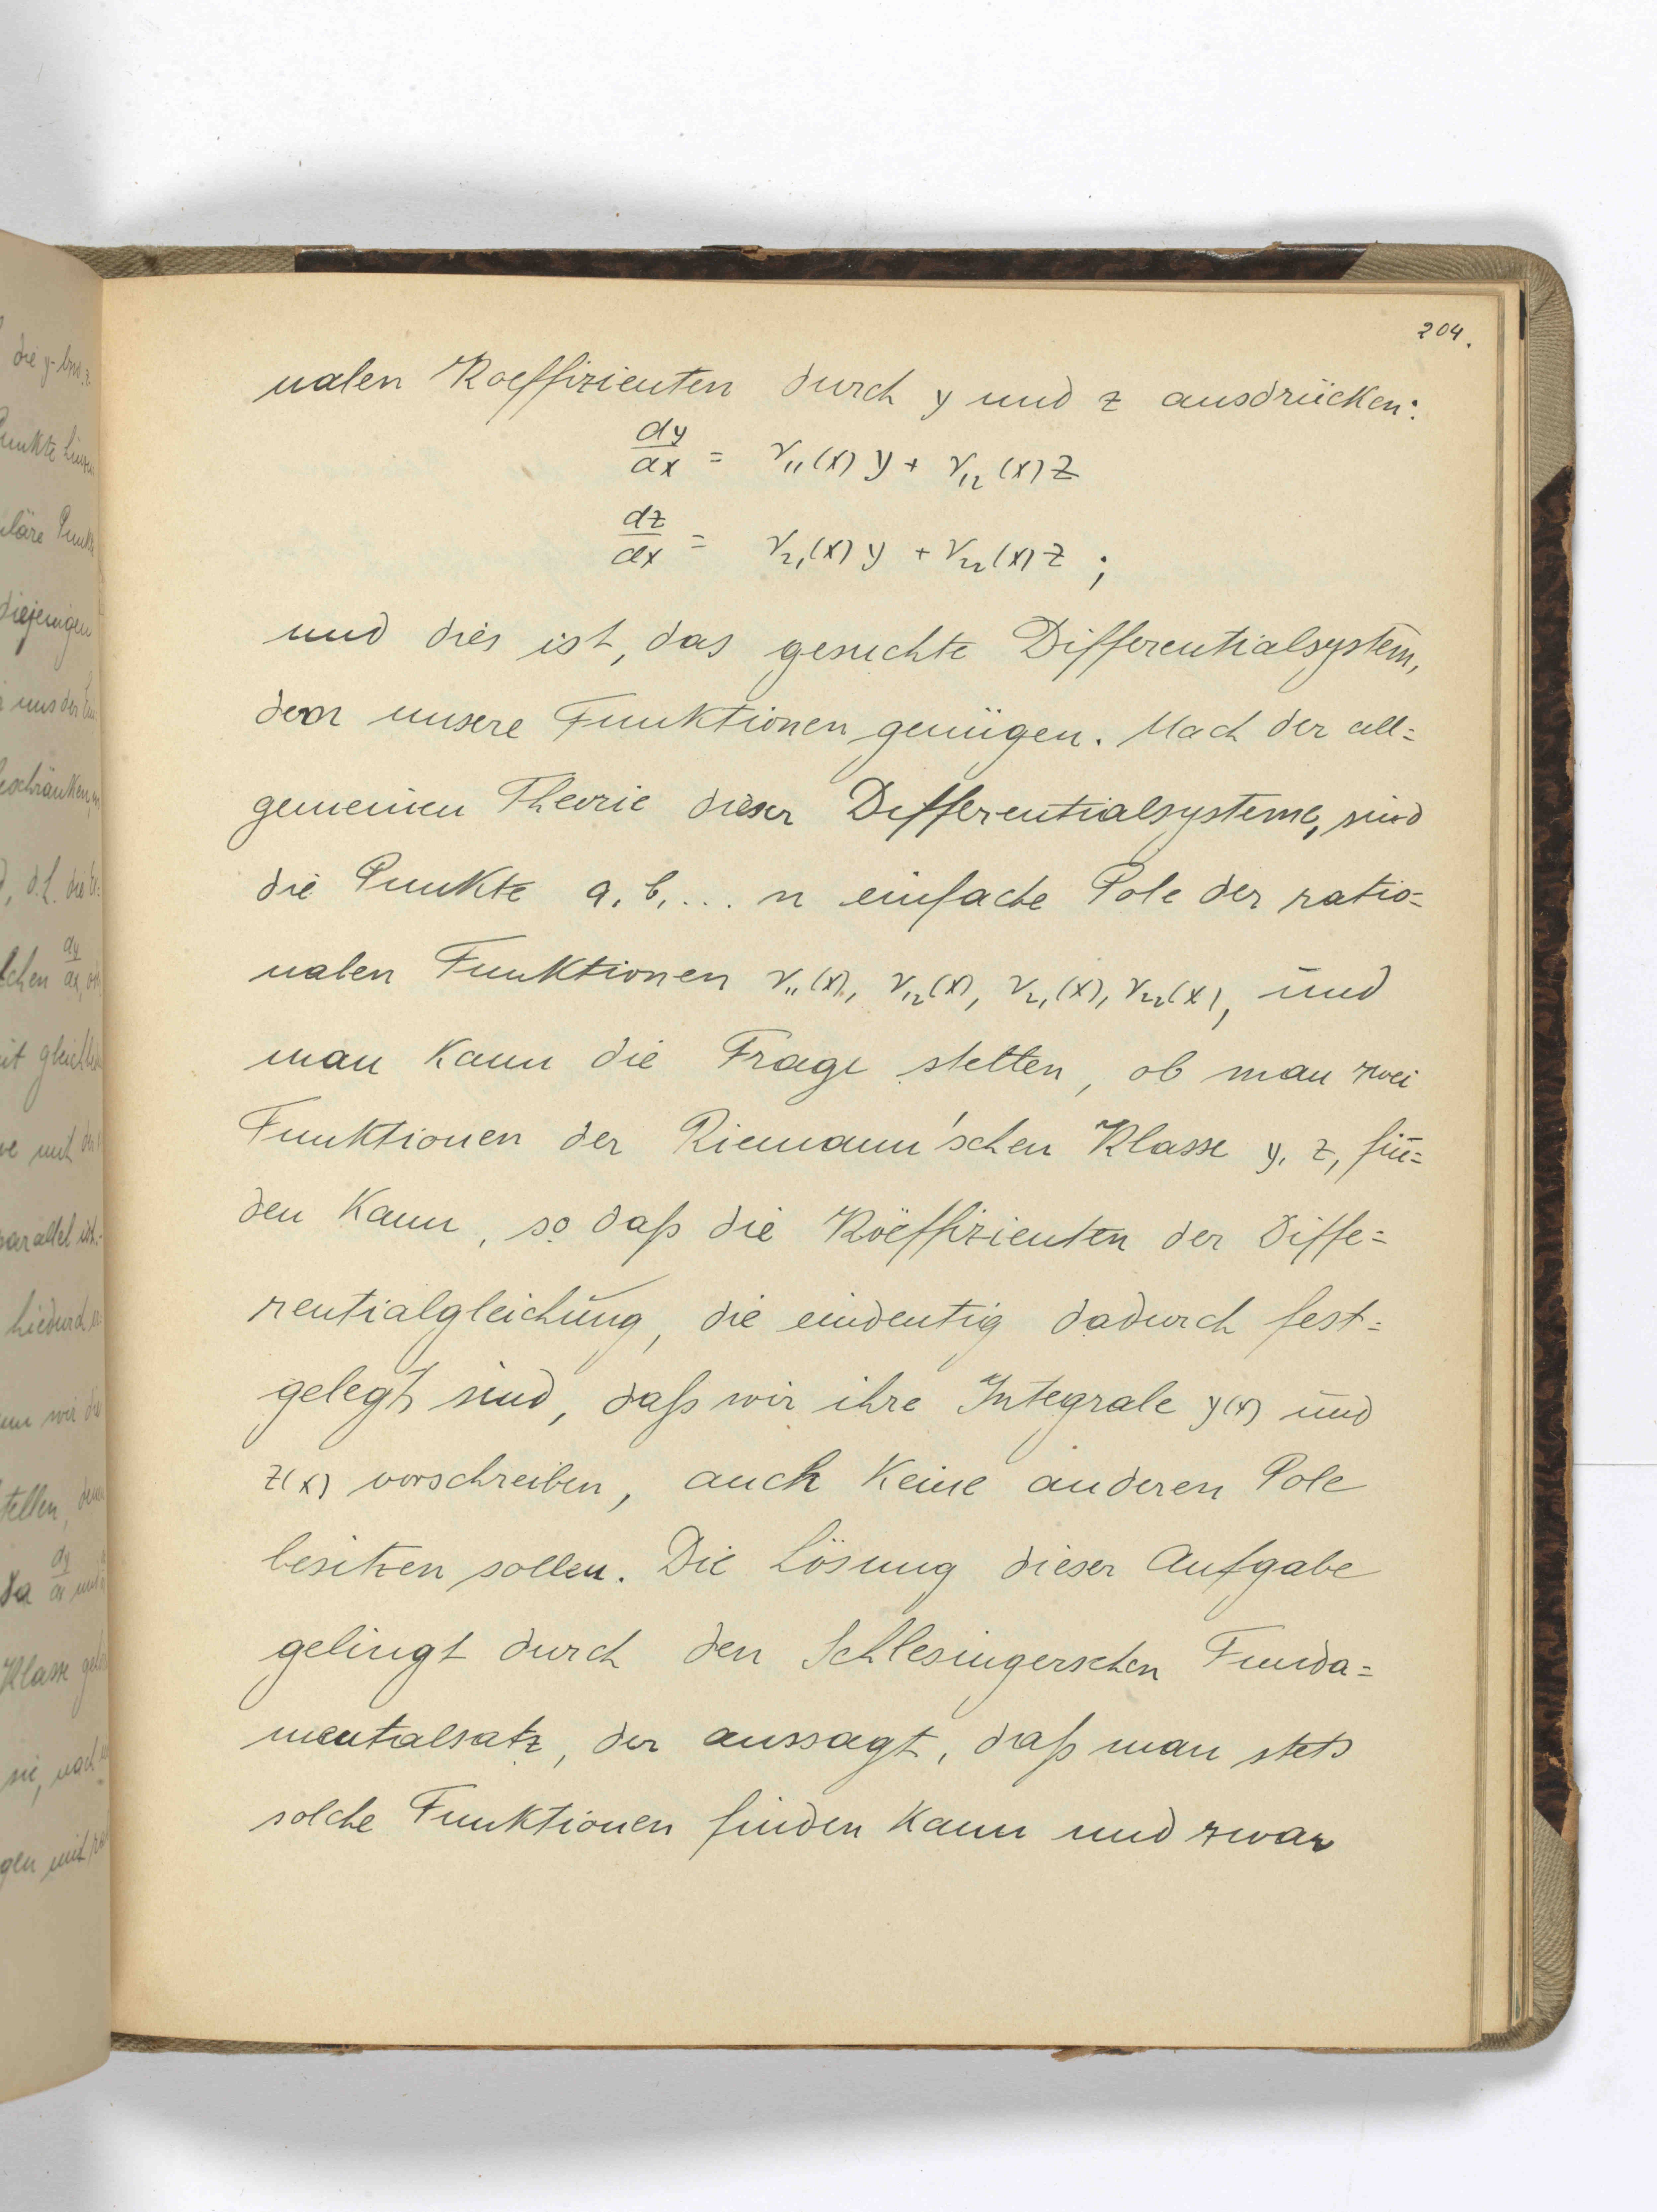 204.
nalen Koeffizienten durch y und z ausdrücken:
dy/dx = r₁₁(x) y + r₁₂(x) z
dz/dx = r₂₁(x) y + r₂₂(x) z ;
und dies ist, das gesuchte Differentialsystem,
dem unsere Funktionen genügen. Nach der all=
gemeinen Theorie dieser Differentialsysteme, sind
die Punkte a, b, ... n einfache Pole der ratio=
nalen Funktionen r₁₁(x), r₁₂(x), r₂₁(x), r₂₂(x), und
man kann die Frage stellen, ob man zwei
Funktionen der Riemann'schen Klasse y, z, fin=
den kann, so daß die Köeffizienten der Diffe=
rentialgleichung, die eindeutig dadurch fest=
gelegt sind, daß wir ihre Integrale y(x) und
z(x) vorschreiben, auch keine anderen Pole
besitzen sollen. Die Lösung dieser Aufgabe
gelingt durch den Schlesingerschen Funda=
mentalsatz, der aussagt, daß man stets
solche Funktionen finden kann und zwar